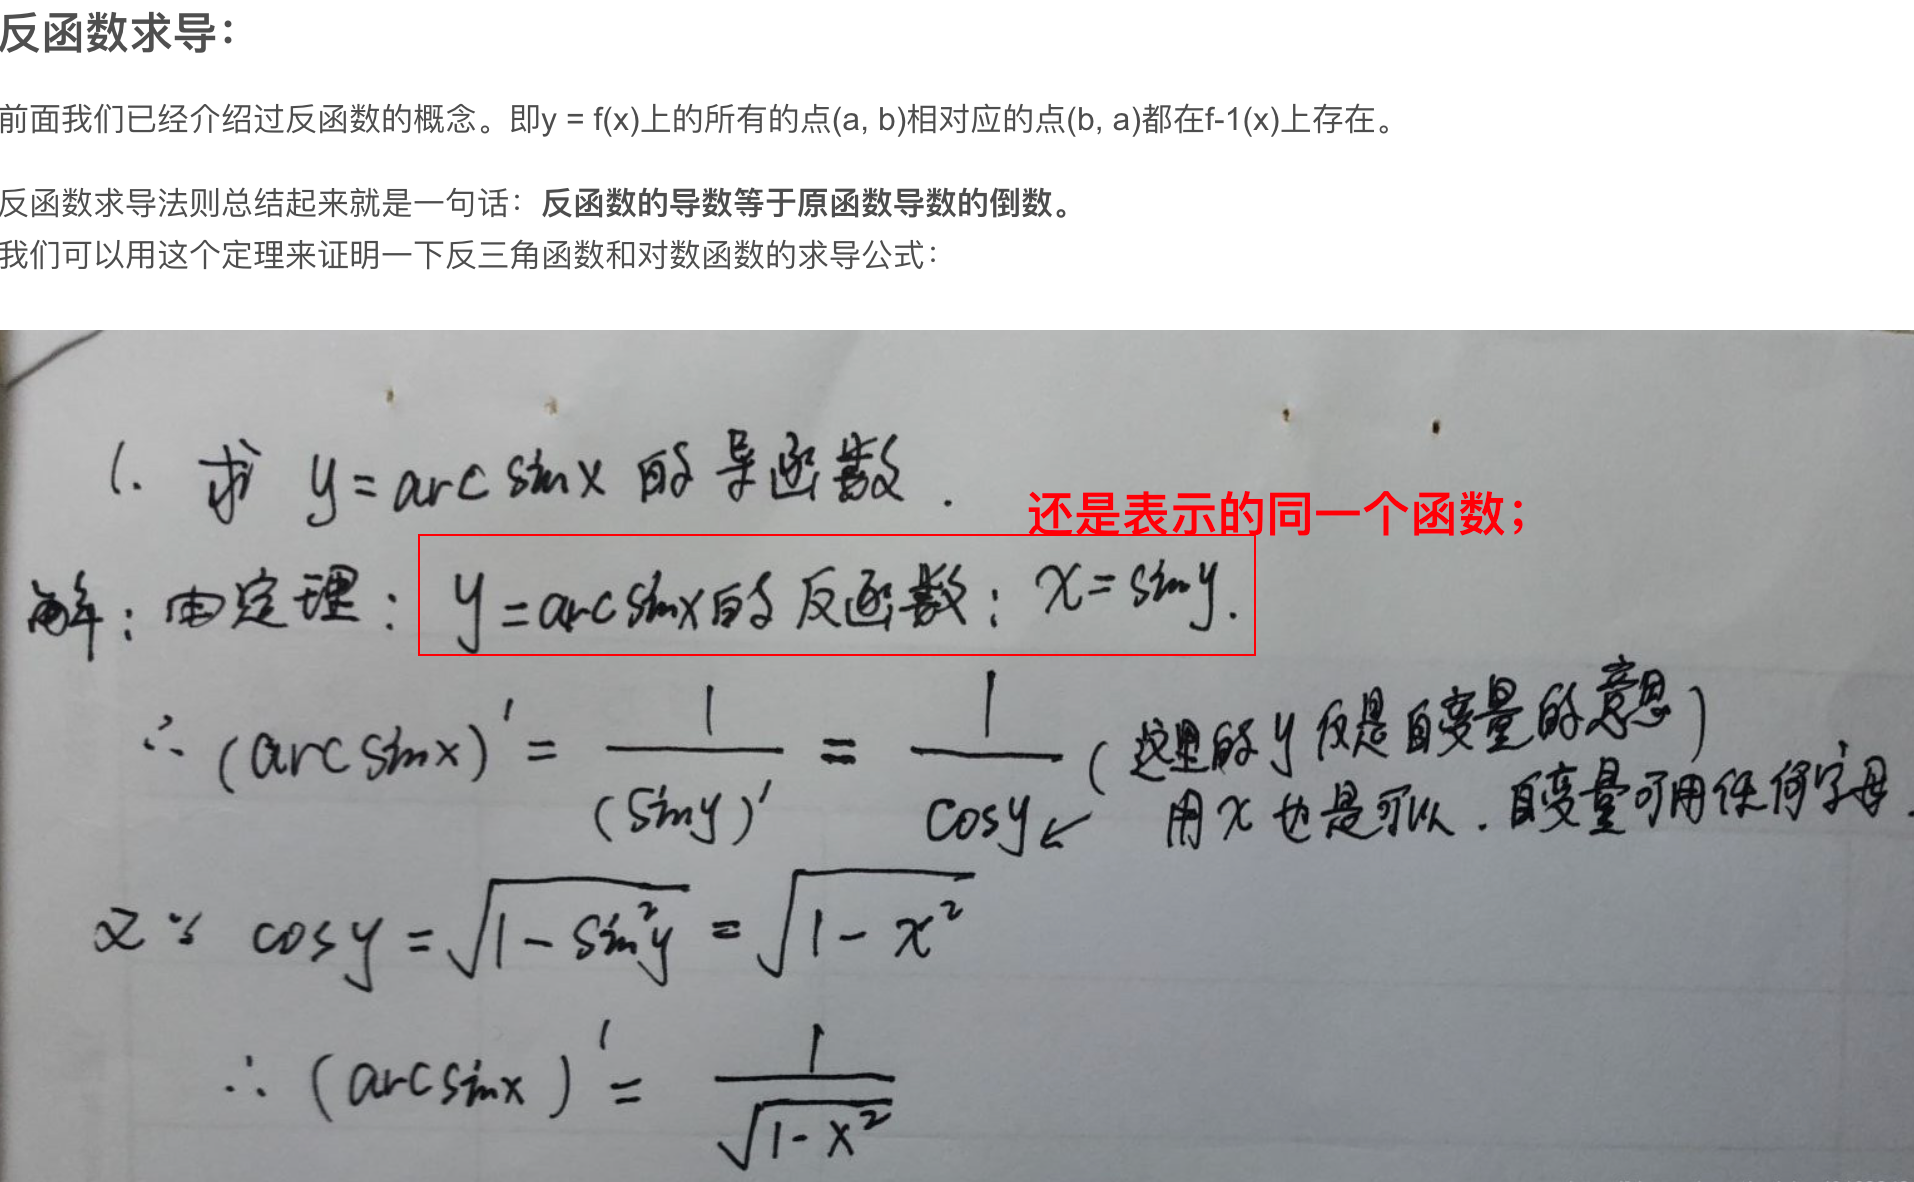 反函数求导：
前面我们已经介绍过反函数的概念。即y = f(x)上的所有的点(a, b)相对应的点(b, a)都在f-1(x)上存在。
反函数求导法则总结起来就是一句话：反函数的导数等于原函数导数的倒数。
我们可以用这个定理来证明一下反三角函数和对数函数的求导公式：
1. 求 y = arc sinx 的导函数.
还是表示的同一个函数；
解：由定理：y = arcsinx的反函数：x = siny.
∴ (arcsinx)' = 1/(siny)' = 1/cosy ↙ (这里的y仅是自变量的意思)
用x也是可以. 自变量可用任何字母.
又∵ cosy = √(1 - sin²y) = √(1 - x²)
∴ (arcsinx)' = 1/√(1 - x²)